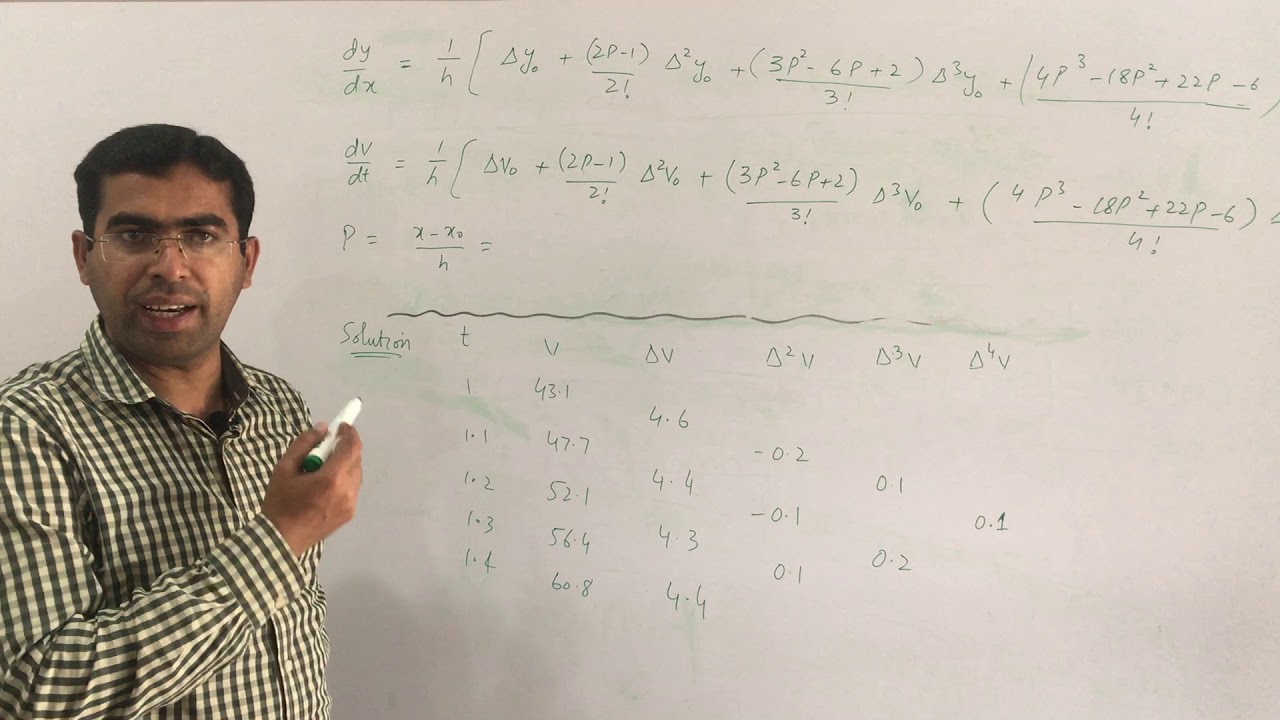 dy/dx = 1/h [ Δy₀ + (2P-1)/2! Δ²y₀ + (3P² - 6P + 2)/3! Δ³y₀ + (4P³ - 18P² + 22P - 6)/4!
dv/dt = 1/h [ ΔV₀ + (2P-1)/2! Δ²V₀ + (3P² - 6P + 2)/3! Δ³V₀ + (4P³ - 18P² + 22P - 6)/4! Δ
P = x - x₀/h =
Solution t V ΔV Δ²V Δ³V Δ⁴V
1 43.1
4.6
1.1 47.7 -0.2
1.2 52.1 4.4 0.1
1.3 56.4 4.3 -0.1 0.1
1.4 60.8 4.4 0.1 0.2